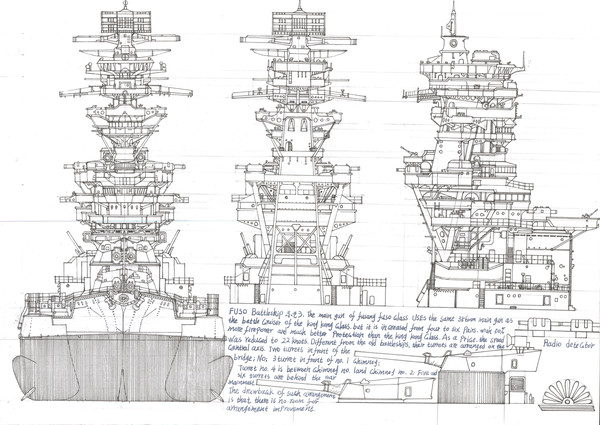 FUSO Battleship
the main gun of fusang fuso Class uses the same 36mm main gun as
the battle Cruiser of the king kong Class. but it is increased from four to six pairs. with
more firepower and much better Protection than the king kong Class. As a Price. the speed
was reduced to 22 knots. Different from the old battleships, their turrets are arranged on the
Central axis. Two turrets in front of the
bridge; No. 3 turret in front of no. 1 chimney.
Turret no. 4 is between chimney no. 1 and chimney no. 2. Five and
six turrets are behind the rear
mainmast
The drawback of such arrangement
is that there is no room for
arrangement improvement.
Radio detector